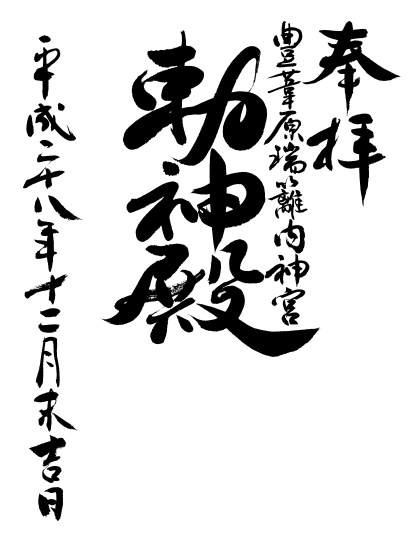 奉拝
豊葦原瑞籬内神宮
勅神殿
平成二十八年十二月末吉日